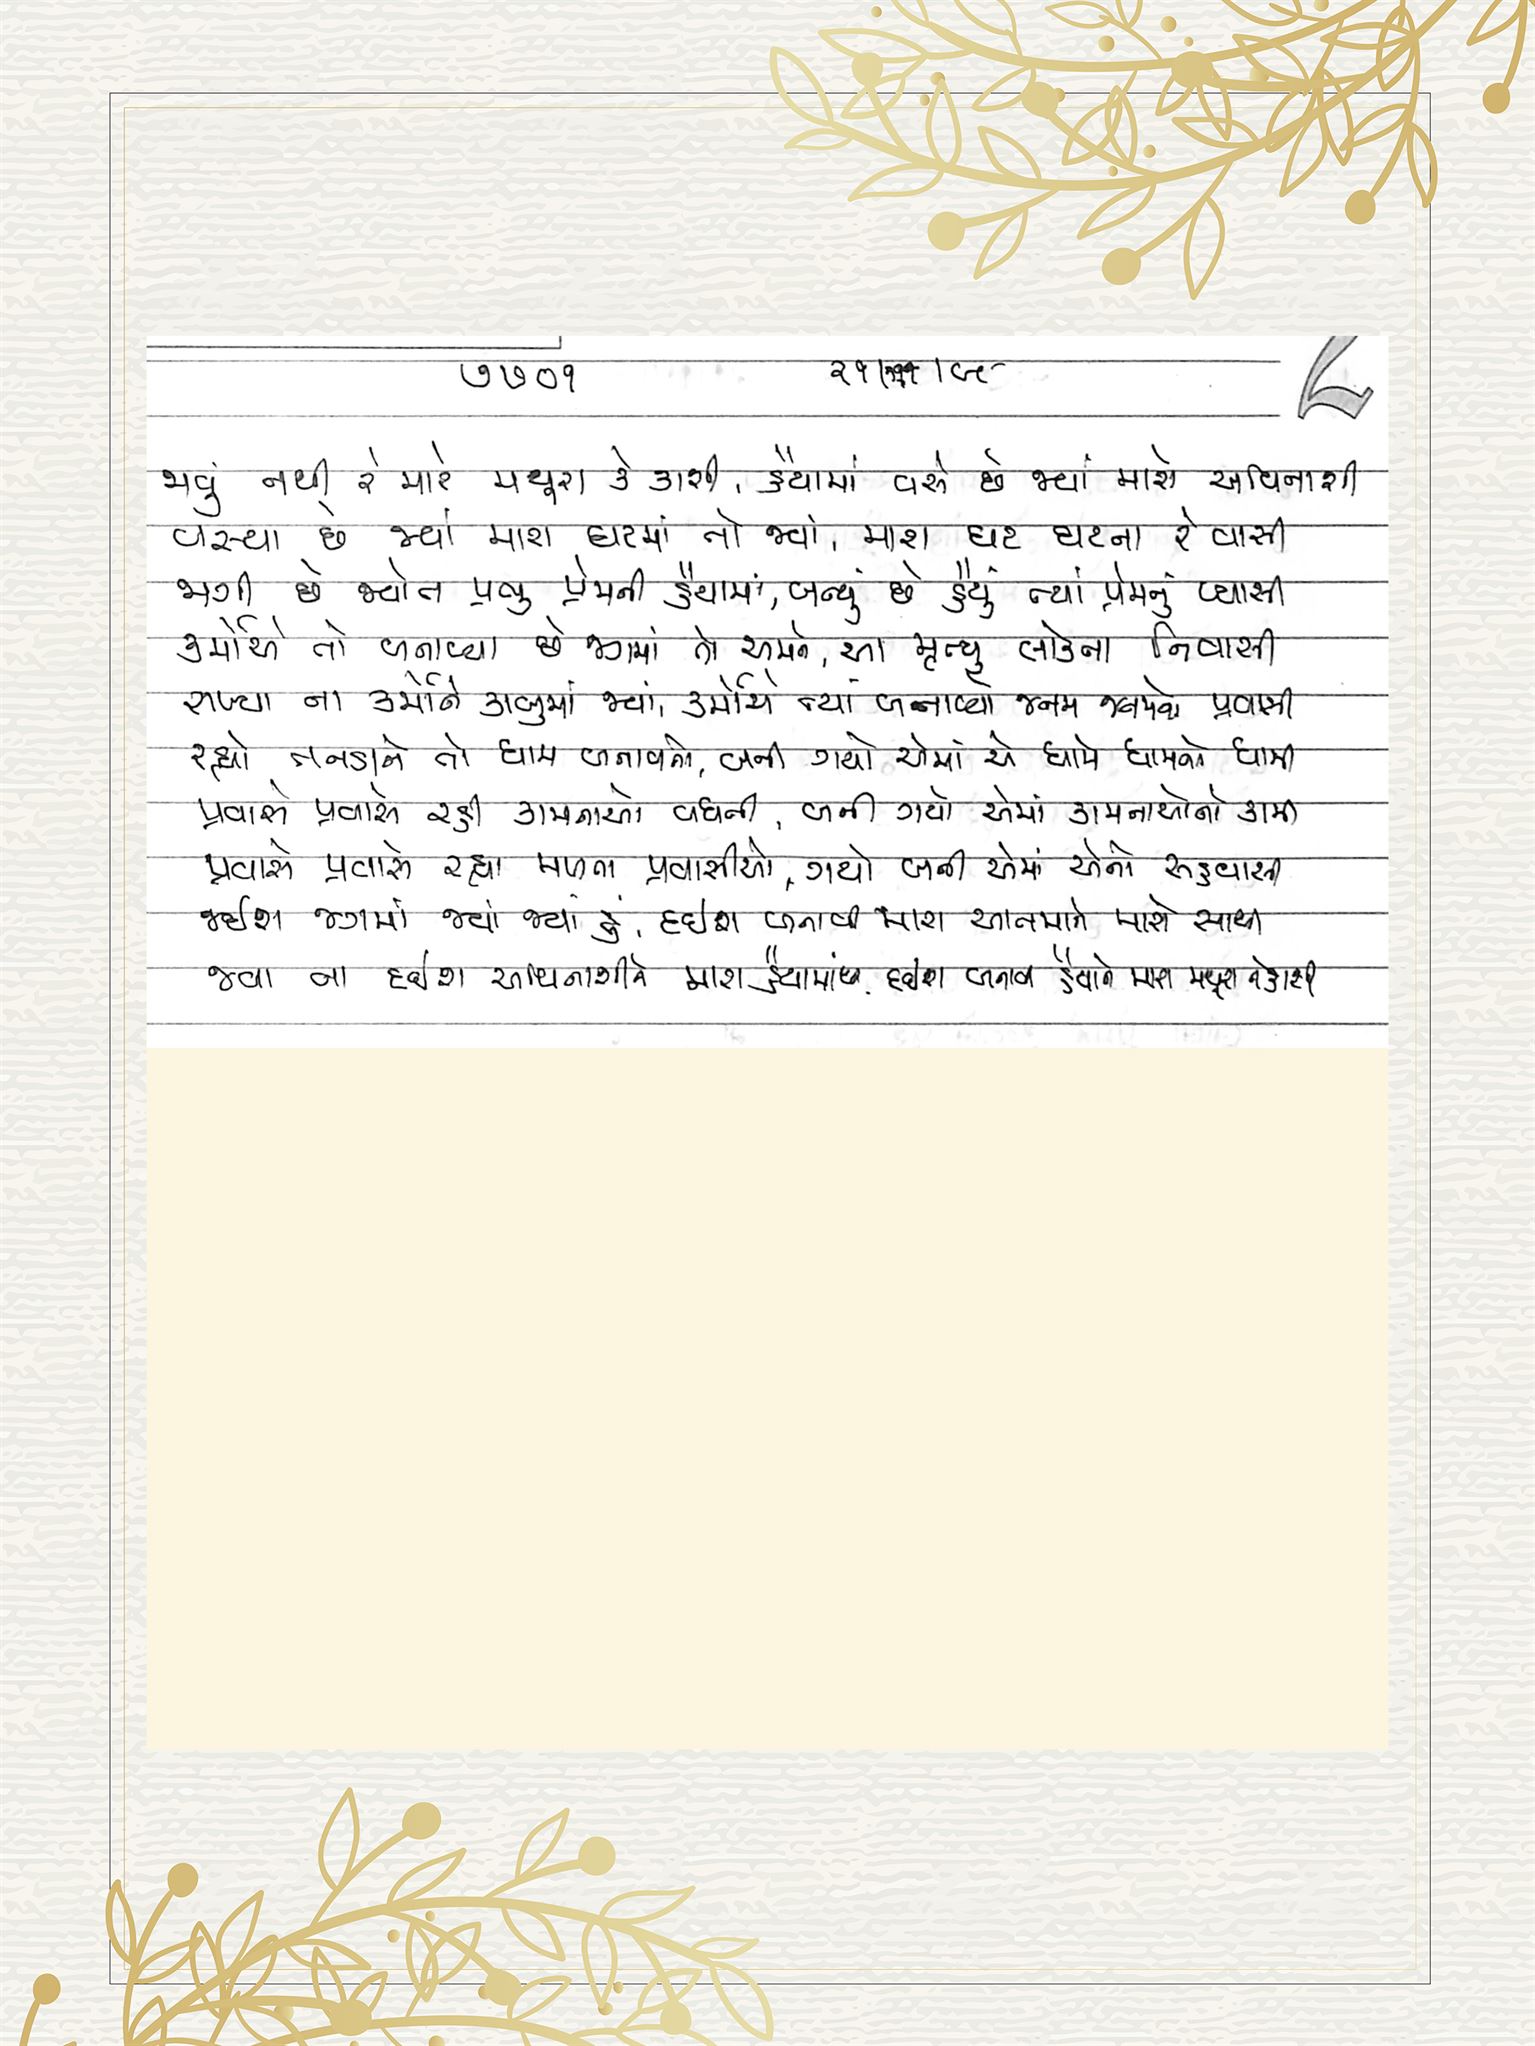 ૭૭૦૧ ૨૧
જાવું નથી રે મારે મથુરા કે કાશી, હૈયામાં વસે છે જ્યાં મારો અવિનાશી
વસ્યા છે જ્યાં મારા ઘટમાં તો જ્યાં, મારા ઘટ ઘટના રે વાસી
જાગી છે જ્યોત પ્રભુ પ્રેમની હૈયામાં, બન્યું છે હૈયું ત્યાં પ્રેમનું પ્યાસી
કર્મોએ તો બનાવ્યા છે જગમાં તો અમને, આ મૃત્યુ લોકના નિવાસી
રાખ્યા ના કર્મોને કાબુમાં જ્યાં, કર્મોએ ત્યાં બનાવ્યો જનમ જનમનો પ્રવાસી
રહ્યો તનડાને તો ધામ બનાવતો, બની ગયો એમાં એ ધામે ધામનો ધામી
પ્રવાસે પ્રવાસે રહી કામનાઓ વધતી, બની ગયો એમાં કામનાઓનો કામી
પ્રવાસે પ્રવાસે રહ્યા મળતા પ્રવાસીઓ, ગયો બની એમાં એનો સહવાસી
જઈશ જગમાં જ્યાં જ્યાં હું, દઈશ બનાવી મારા આતમાને મારો સાથી
જવા ના દઈશ અવિનાશીને મારા હૈયામાંથી, દઈશ બનાવી હૈયાને મારા મથુરા ને કાશી